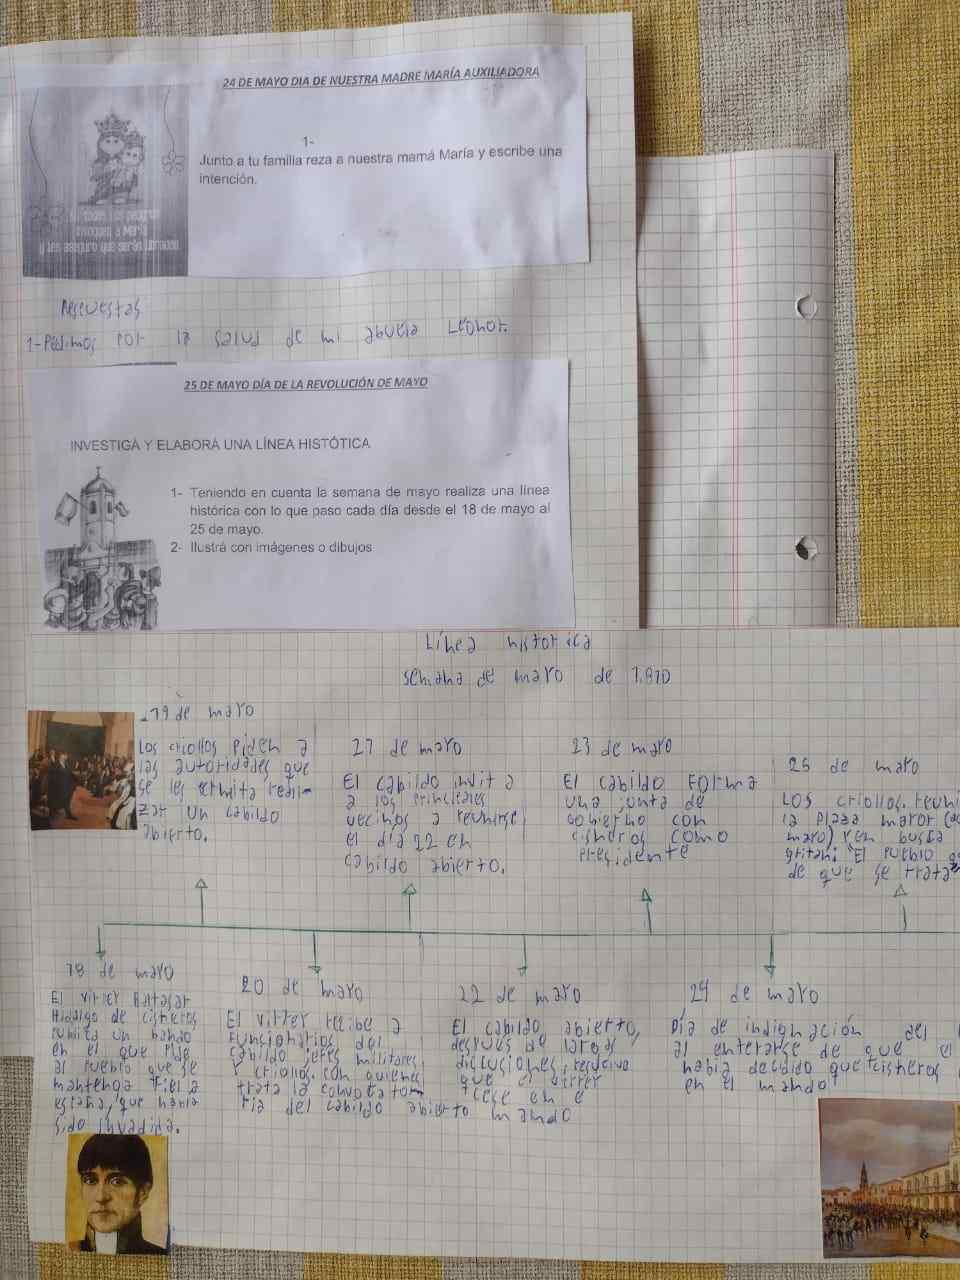 24 DE MAYO DIA DE NUESTRA MADRE MARÍA AUXILIADORA
1-
Junto a tu familia reza a nuestra mamá María y escribe una
intención.
invoquen a María
y les aseguro que serán
Respuestas
1-Pedimos por la salud de mi abuela Leonor.
25 DE MAYO DÍA DE LA REVOLUCIÓN DE MAYO
INVESTIGÁ Y ELABORÁ UNA LÍNEA HISTÓTICA
1- Teniendo en cuenta la semana de mayo realiza una línea
histórica con lo que paso cada día desde el 18 de mayo al
25 de mayo.
2- Ilustrá con imágenes o dibujos
Línea historica
semana de mayo de 1.810
-19 de mayo
Los criollos piden a
las autoridades que
se les permita reali-
zar un cabildo
abierto.
21 de mayo
El cabildo invita
a los principales
vecinos a reunirse
el día 22 en
cabildo abierto.
23 de mayo
El cabildo forma
una junta de
gobierno con
cisneros como
presidente
25 de mayo
Los criollos reuni
la plaza mayor
mayo) y en busca
gritan: "El pueblo
de que se trata
18 de mayo
El virrey Baltasar
Hidalgo de cisneros
publica un bando
en el que pide
al pueblo que se
mantenga fiel a
españa, que había
sido invadida.
20 de mayo
El virrey recibe a
funcionarios del
cabildo jefes militares
y criollos con quienes
trata la convocato-
ria del cabildo abierto
22 de mayo
El cabildo abierto,
después de largas
discusiones, resuelve
que el virrey
cese en e
mando
24 de mayo
Día de indignación del
al enterarse de que el
había decidido que cisneros
en el mando